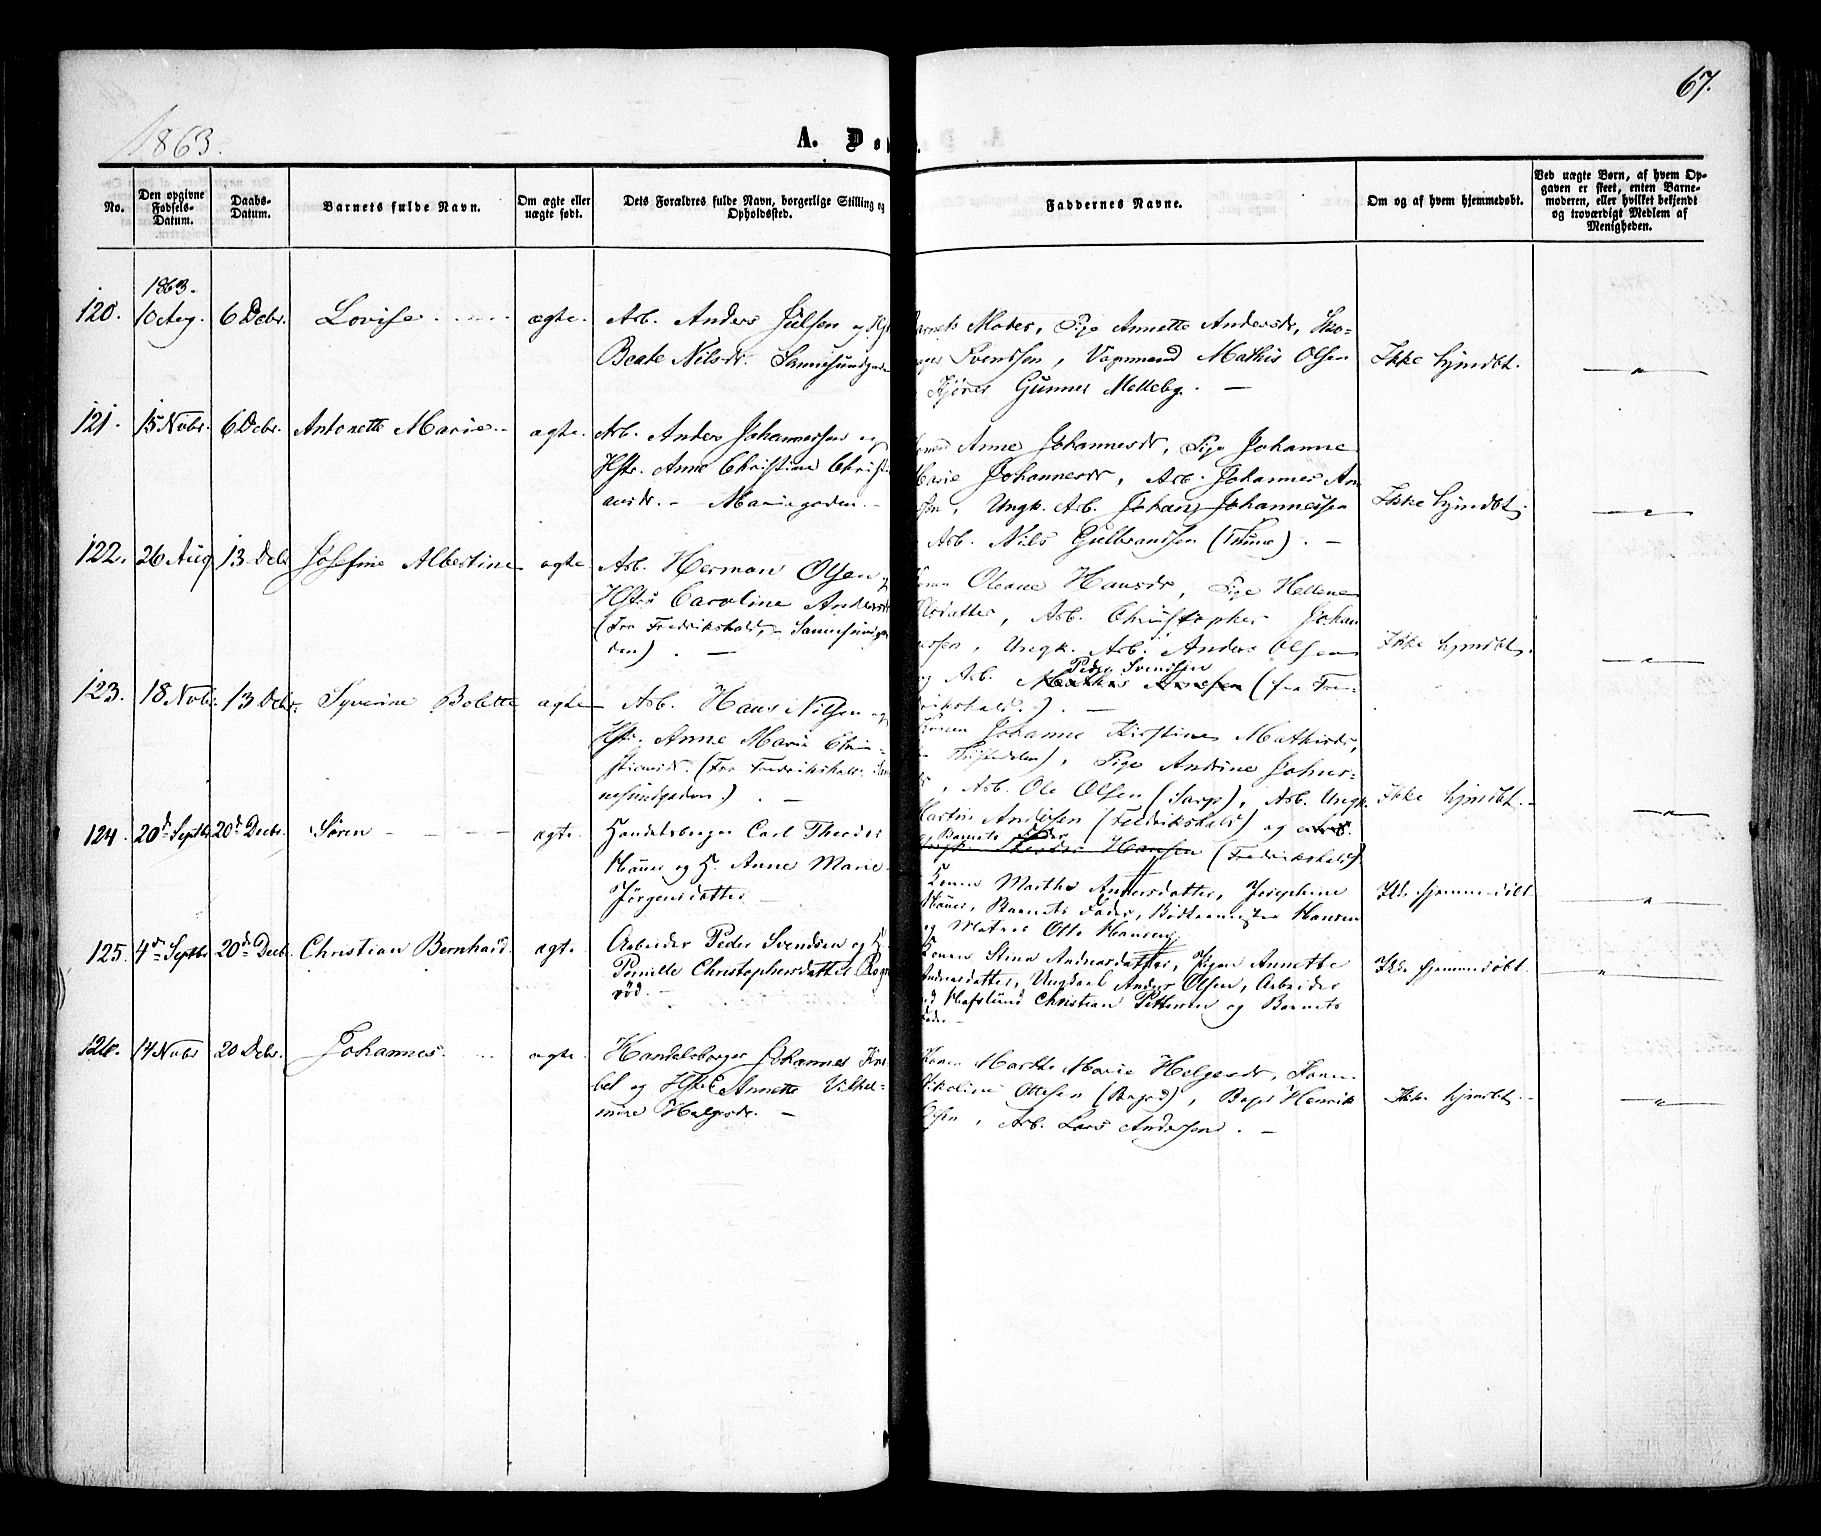 67.
1863.
A. Do
No.
Den opgivne Fødsels-Datum.
Daabs-Datum.
Barnets fulde Navn.
Om ægte eller uægte født.
Dets Forældres fulde Navn, borgerlige Stilling og Opholdssted.
Faddernes Navne.
Om og af hvem hjemmedøbt.
Ved uægte Børn, af hvem Opgaven er skeet, enten Barnemoderen, eller hvilket bekjendt og troværdigt Medlem af Menigheden.
1863.
120. 10 Aug. 6 Debr. Lovise ægte.
Arb. Anders Julsen og
Beate Nilsdr. Sannesund
Moder, Pige Annette Andersdr, Sko-
Svendsen, Vognmand Mathis Olsen
Kjører Gunner Melleby.
Ikke hjmdbt. "
121. 15 Novbr. 6 Debr. Antonette Marie ægte.
Arb. Anders Johannessen og
Hstr. Anne Christine Christi
ansdr. - Mariegaden.
Anne Johannesdr, Pige Johanne
Marie Johannesdr, Arb. Johannes An
Ungk. Arb. Johan Johannessen
Arb. Nils Gulbrandsen (Thune).
Ikke hjmdbt. "
122. 26 Aug 13 Debr Josefine Albertine ægte
Arb. Herman Olsen
Hstr. Caroline Andersdr
(Fra Fredrikshald, - Sannesundga
den).
Oleane Hansdr, Pige Hellene
Arb. Christopher Johan
Ungk. Arb. Anders Olsen
Peder Svendsen
og Arb. (fra Fre-
drikshald.)
Ikke hjmdbt. "
123. 18 Novbr. 13 Debr. Syverine Bolette ægte
Arb. Hans Nilsen
Hstr. Anne Marie Chri-
stiansdr. (Fra Fredrikshald. San
nesundgaden.)
Johanne Kirstine Mathisdr,
Pige Andrine Johns-
Arb. Ole Olsen (Sarp), Arb. Ungk.
Martin Andersen (Fredrikshald) og
Barnets Fader
Hansen (Fredrikshald)
Ikke hjmdbt. "
124. 20d Septbr 20d Decbr. Søren ægte
Handelsborger Carl Theodor
og H. Anne Marie
Jørgensdatter
Konen Marthe Andersdatter, Josephine
Barnets Fader, Hansen
og Matros Otto Hansen
Ikke hjemmedøbt "
125. 4de Septbr 20d Decbr. Christian Bernhard ægte
Arbeider Peder Svendsen og H.
Pernille Christophersdatter
rød.
Konen Stine Andreasdatter, Pigen Annette
Andreasdatter, Ungkarl Anders Olsen, Arbeider
Hafslund Christian Pettersen og Barnets
Fader
Ikke hjemmedøbt. "
126. 14 Novbr 20 Debr. Johannes ægte
Handelsborger Johannes
bel og Hstr Annette Vilhel-
mine Helgesdr.
Marthe Marie Helgesdr,
Nikoline Ottesen Bager Henrik
Arb. Lars Andersen.
Ikke hjmdbt. "